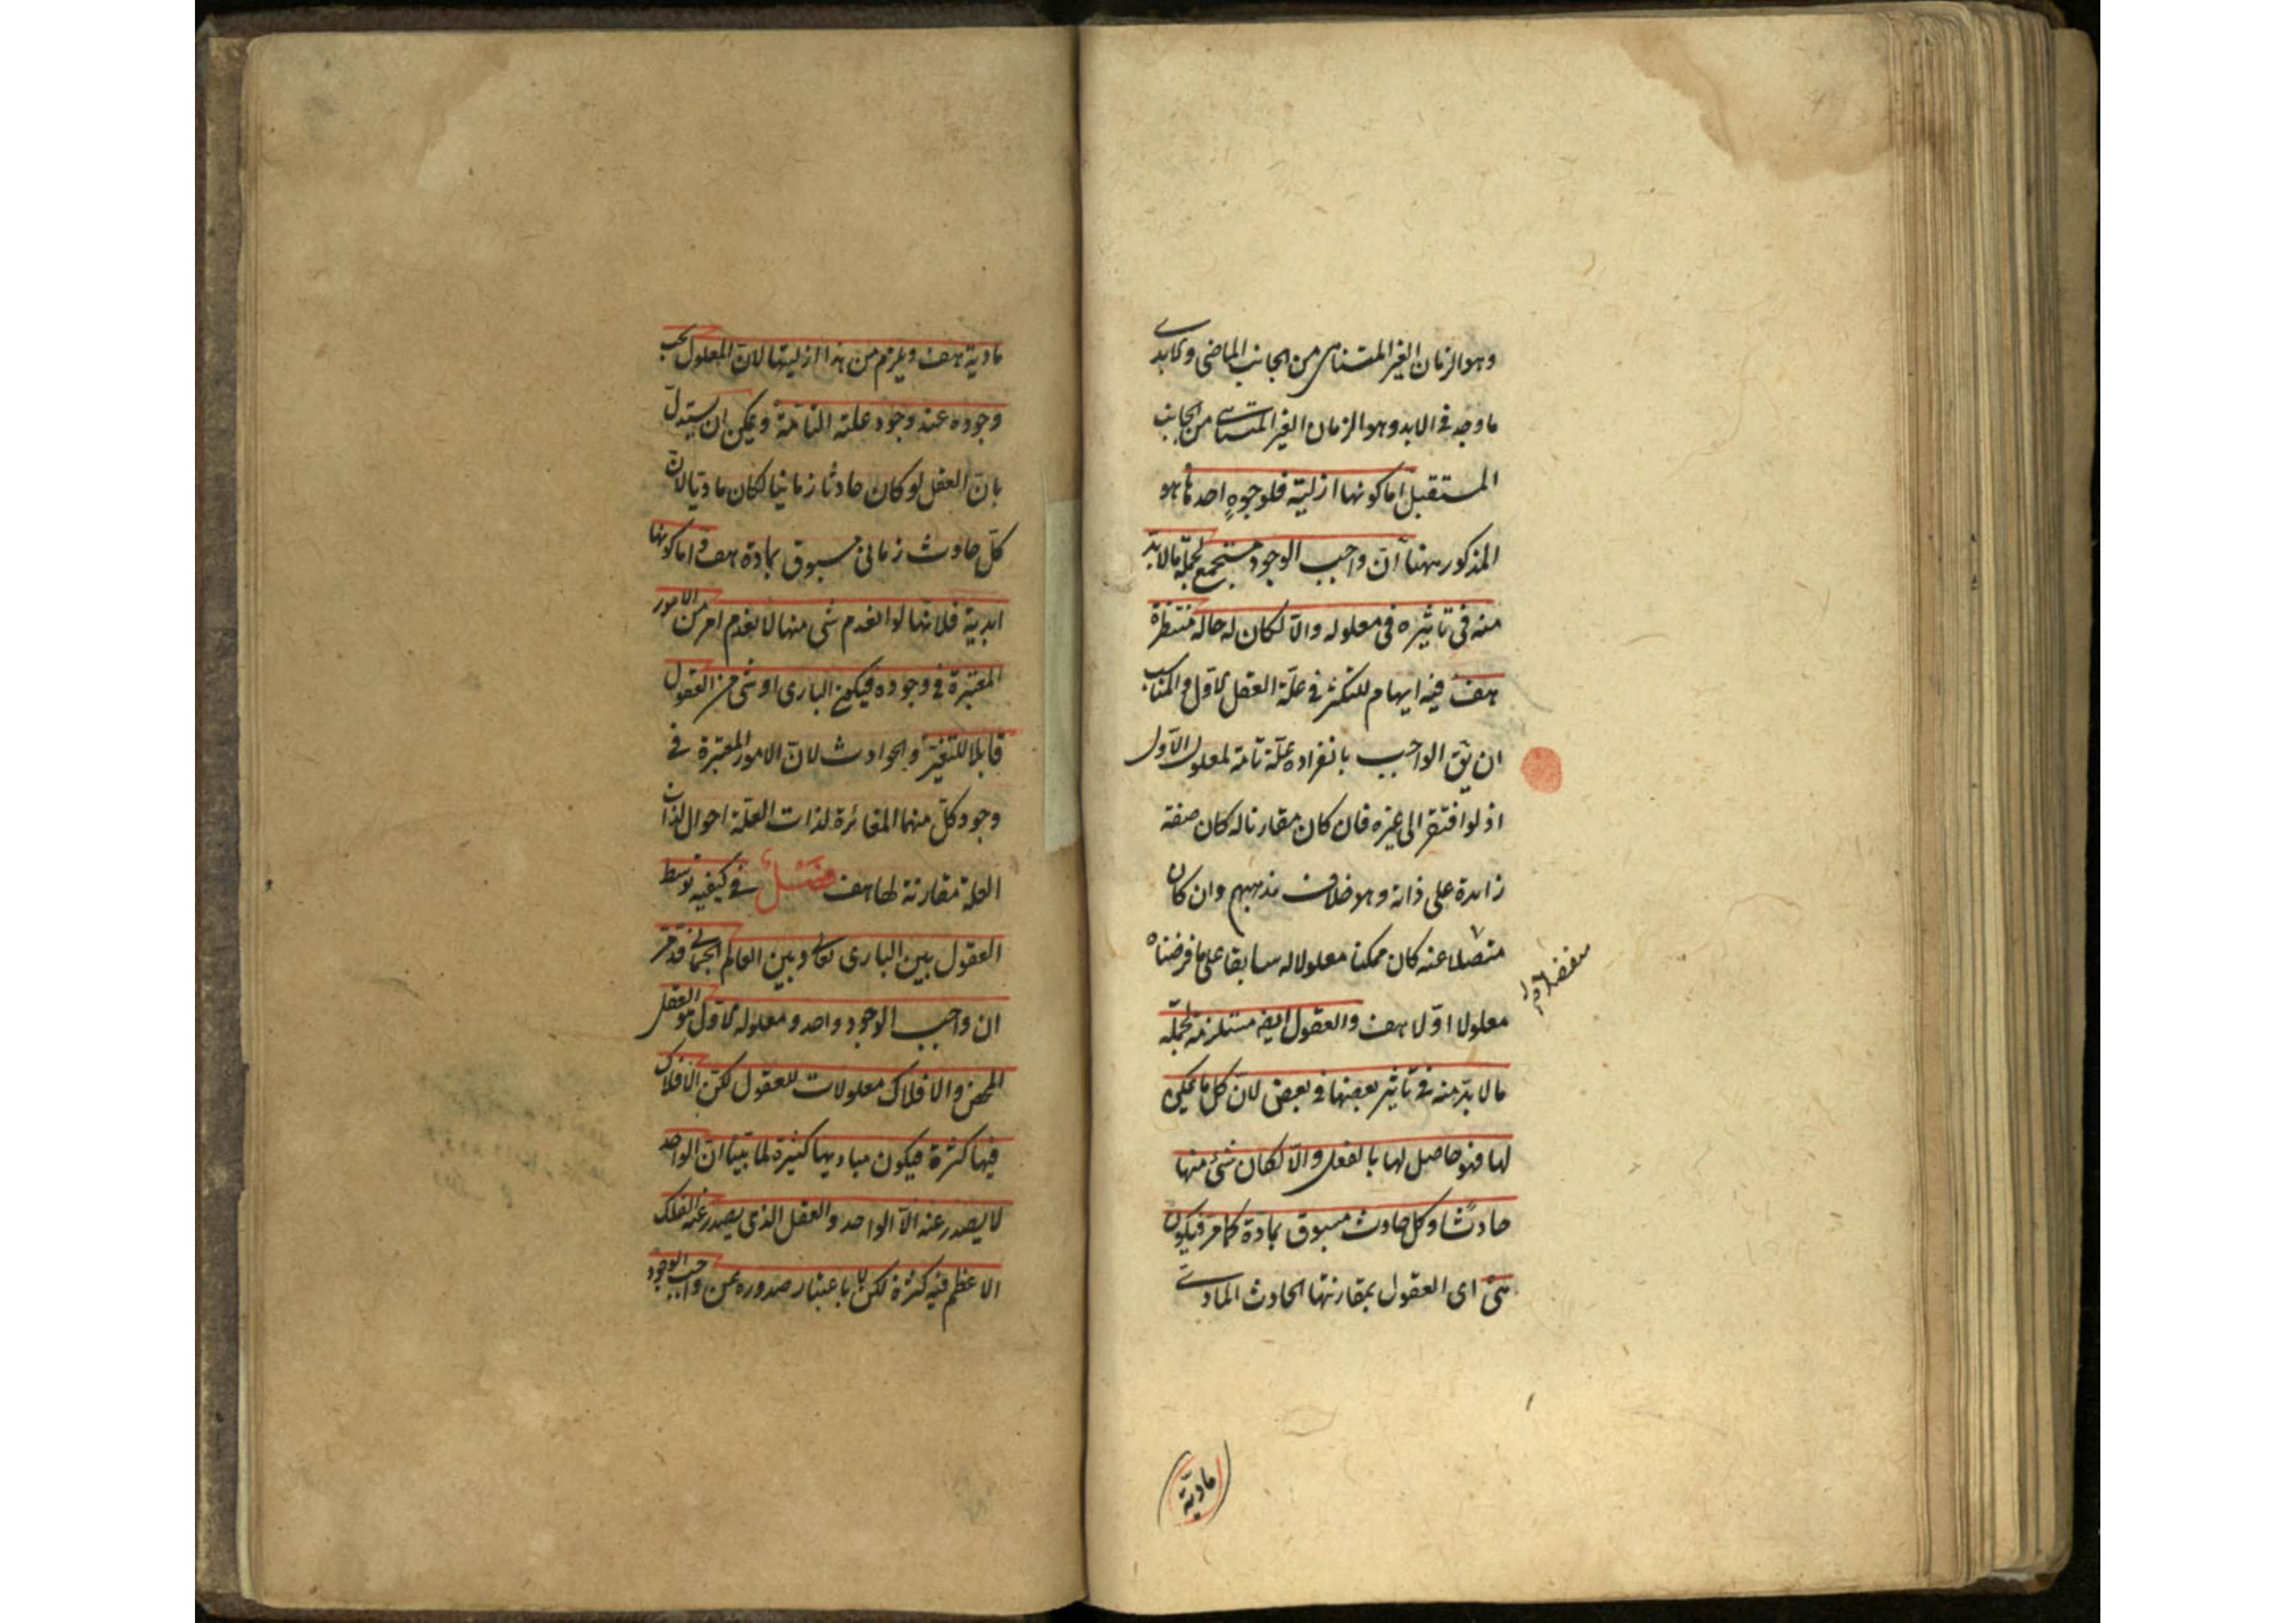 وهو الزمان الغير المتناهى من الجانب الماضى والابدى
ما وجد فى الابد وهو الزمان الغير المتناهى من الجانب
المستقبل اما كونها ازلية فلوجوه احدها ما هو
المذكور ههنا ان واجب الوجود مستجمع لجملة ما لا بد
منه فى تاثيره فى معلوله والا لكان له حالة منتظرة
هف فيه ايهام للتكثر فى علة العقل الاول والمناسب
ان يق الواجب بانفراده علة تامة لمعلوله الاول
اذ لو افتقر الى غيره فان كان مقارنا له كان صفة
زايدة على ذاته وهو خلاف مذهبهم وان كان
منفصلا عنه كان ممكنا معلولا له سابقا على ما فرضناه
معلولا اولا هف والعقول ايضا مستلزمة لجملة
ما لا بد منه فى تاثير بعضها فى بعض لان كل ما يمكن
لها فهو حاصل لها بالفعل والا لكان شئ منها
حادثا وكل حادث مسبوق بمادة كما مر فيكون
هى اى العقول بمقارنتها الحادث المادى
مادية
مادية هف ويلزم من هذا ازليتها لان المعلول يجب
وجوده عند وجود علته التامة ويمكن ان يستدل
بان العقل لو كان حادثا زمانيا لكان ماديا لان
كل حادث زمانى مسبوق بمادة هف واما كونها
ابدية فلانها لو انعدم شى منها لانعدم امر من الامور
المعتبرة فى وجوده فيكون البارى او شى من العقول
قابلا للتغير والحوادث لان الامور المعتبرة فى
وجود كل منهما المغائرة لذات العلة احوال لذات
العلة مقارنة لها هف فصل فى كيفية توسط
العقول بين البارى تعالى وبين العالم الجسمانى قد مر
ان واجب الوجود واحد ومعلوله الاول هو العقل
المحض والافلاك معلولات للعقول لكن الافلاك
فيها كثرة فيكون مباديها كثيرة لما بينا ان الواحد
لا يصدر عنه الا الواحد والعقل الذى يصدر عنه الفلك
الاعظم فيه كثرة لكن لا باعتبار صدوره عن واجب الوجود